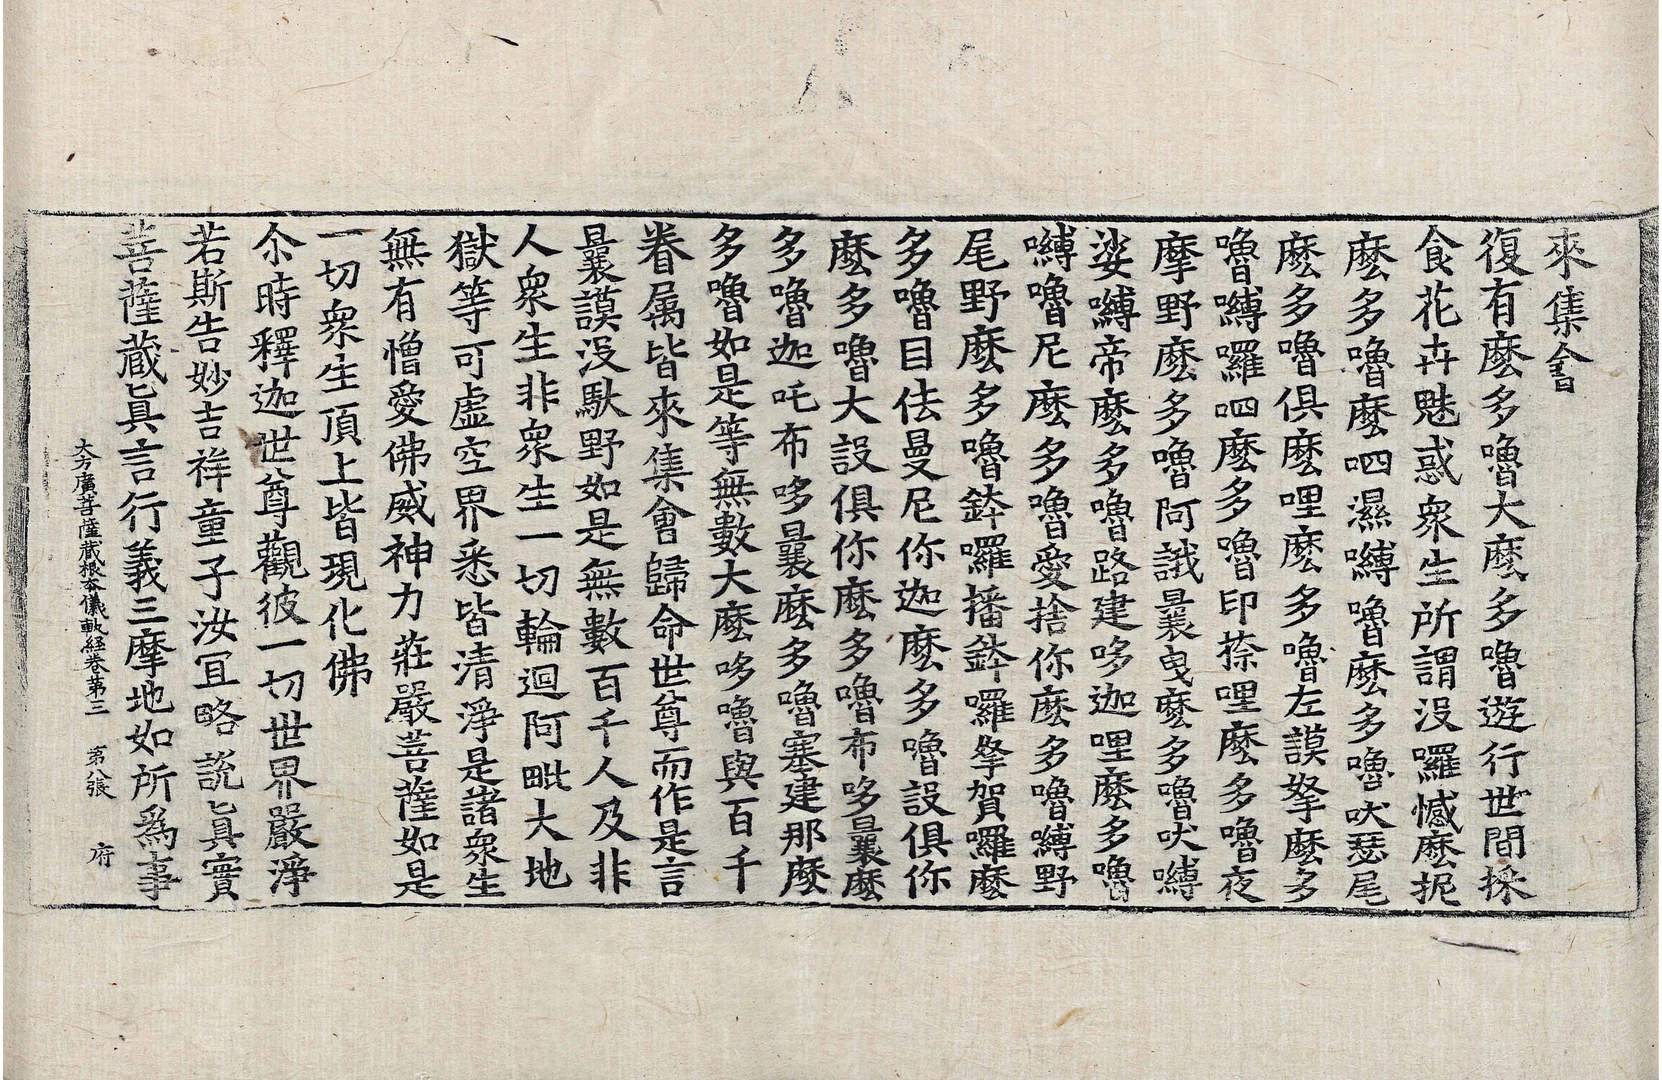 來集會
復有麽多嚕大麽多嚕遊行世間採
食花卉魅惑衆生所謂沒囉憾麽抳
麽多嚕麽呬濕嚩嚕麽多嚕吠瑟尾
麽多嚕俱麽哩麽多嚕左謨拏麽多
嚕嚩囉呬麽多嚕印捺哩麽多嚕夜
摩野麽多嚕阿誐曩曳麽多嚕吠嚩
娑嚩帝麽多嚕路建哆迦哩麽多嚕
嚩嚕尼麽多嚕愛捨你麽多嚕嚩野
尾野麽多嚕鉢囉播鉢囉拏賀囉麽
多嚕目佉曼尼你迦麽多嚕設俱你
麽多嚕大設俱你麽多嚕布哆曩麽
多嚕迦吒布哆曩麽多嚕塞建那麽
多嚕如是等無數大麽哆嚕與百千
眷属皆來集會歸命世尊而作是言
曩謨沒馱野如是無數百千人及非
人衆生非衆生一切輪迴阿毗大地
獄等可虛空界悉皆清淨是諸衆生
無有憎愛佛威神力莊嚴菩薩如是
一切衆生頂上皆現化佛
尒時釋迦世尊觀彼一切世界嚴淨
若斯告妙吉祥童子汝冝略說眞實
菩薩藏眞言行義三摩地如所爲事
大方廣菩薩藏根本儀軌経卷第三 第八張 府